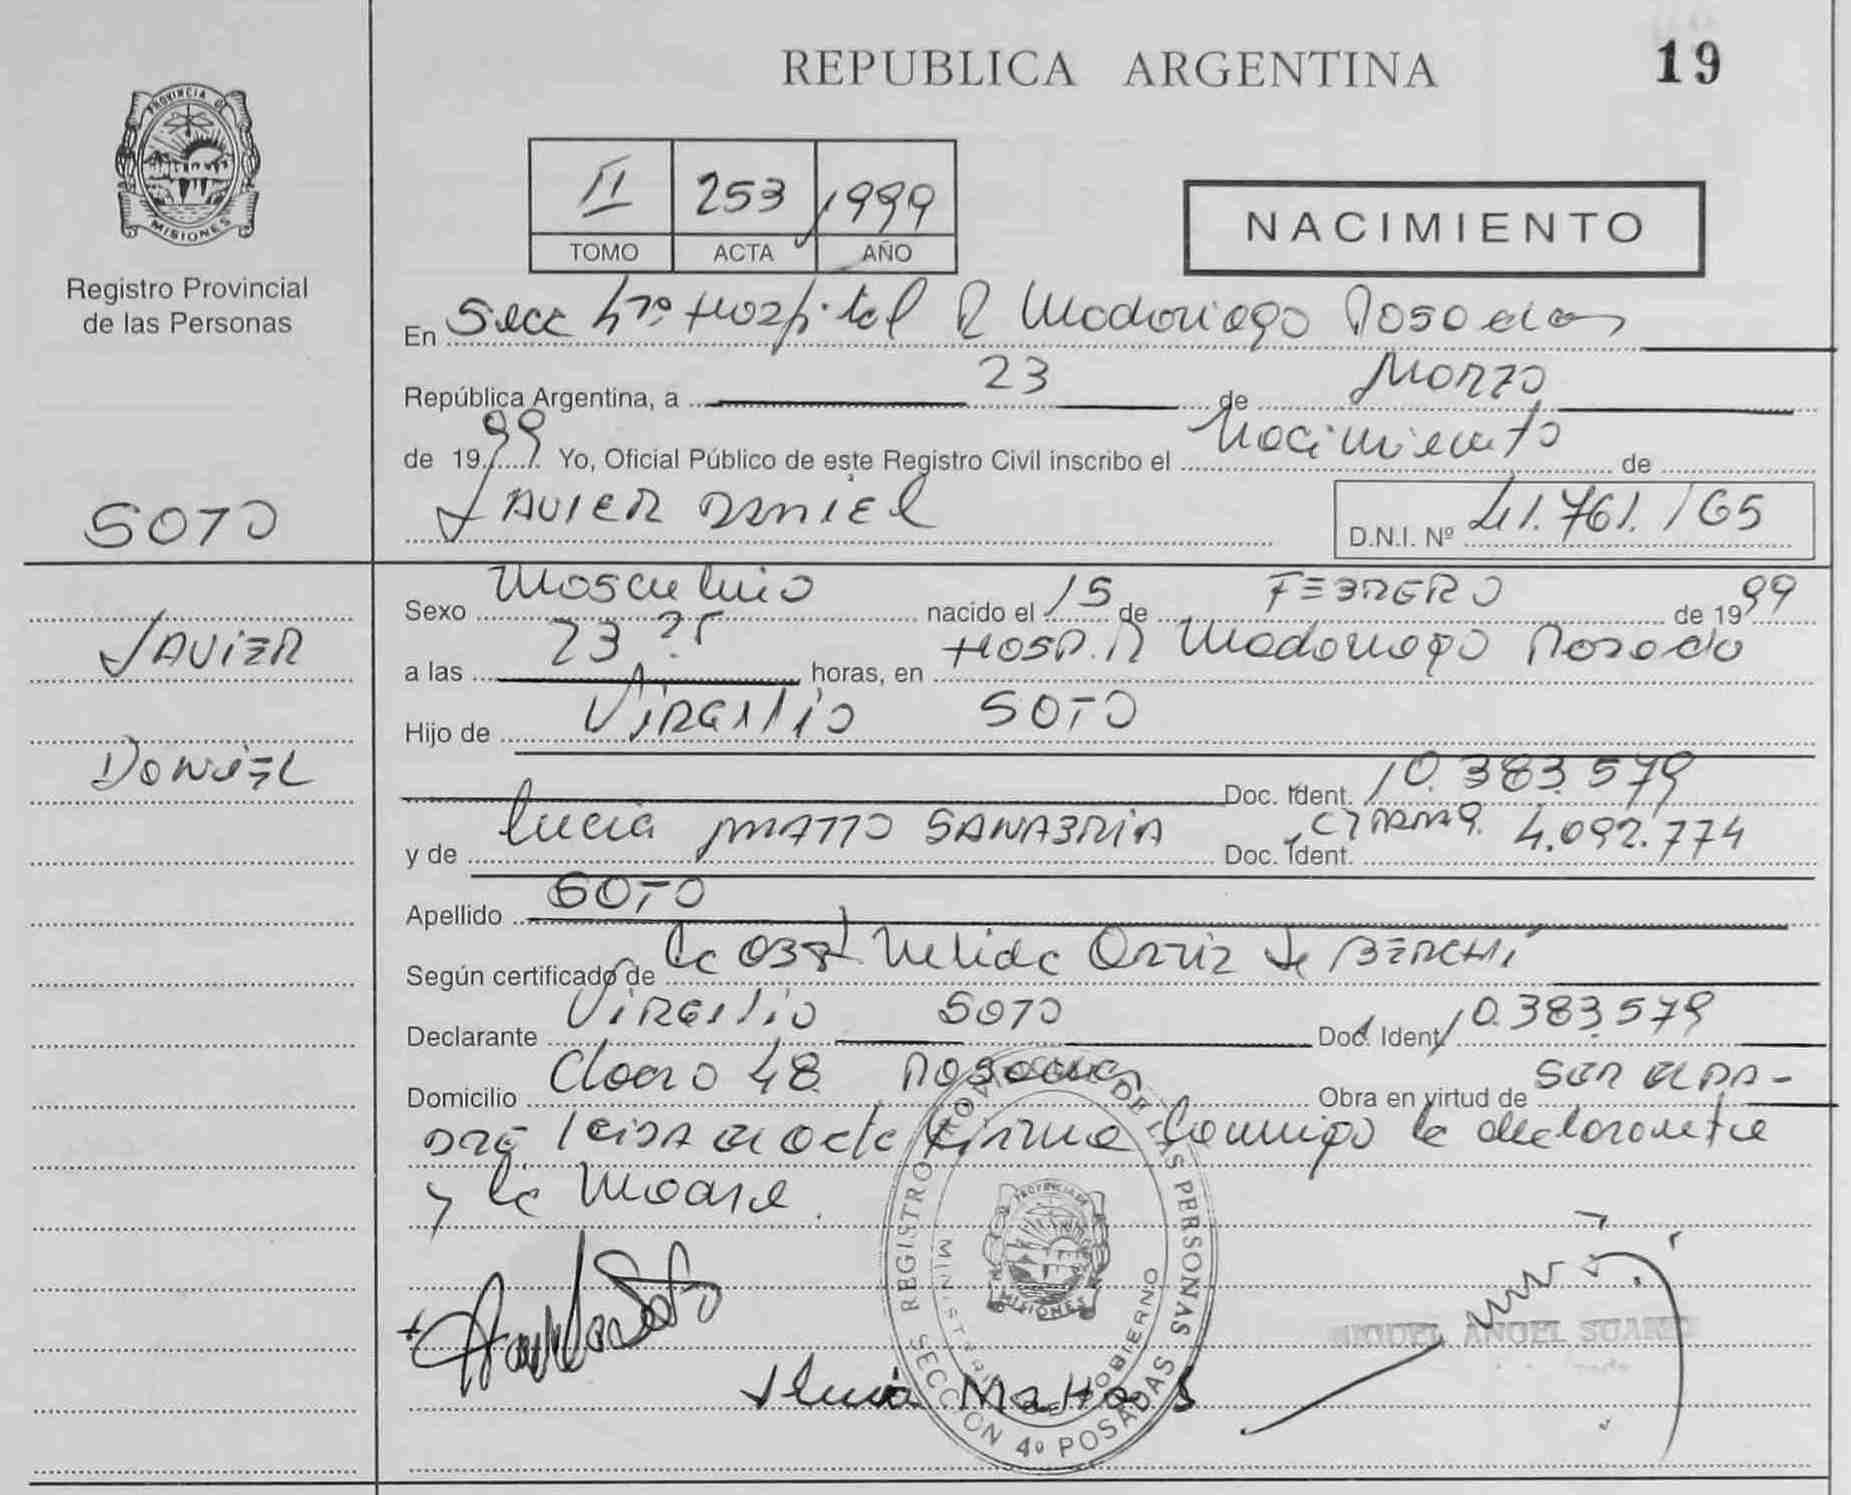 REPUBLICA ARGENTINA
19
PROVINCIA DE
MISIONES
Registro Provincial
de las Personas
II 253 1999
TOMO ACTA AÑO
NACIMIENTO
En Secc 4ra Hospital R Madariaga Posadas
República Argentina, a 23 de Marzo
de 1999 Yo, Oficial Público de este Registro Civil inscribo el Nacimiento de
JAVIER DANIEL
D.N.I. Nº 41.761.165
SOTO
JAVIER
DANIEL
Sexo Masculino nacido el 15 de FEBRERO de 1999
a las 23 horas, en HOSP. R Madariaga Posadas
Hijo de VIRGILIO SOTO
Doc. Ident. 10.383.579
y de Lucia MATTO SANABRIA Doc. Ident. 4.092.774
Apellido SOTO
Según certificado de la OBST Nelida ORTIZ de
Declarante VIRGILIO SOTO Doc. Ident. 10.383.579
Domicilio 48 Posadas Obra en virtud de SER EL PA-
DRE LEIDA el acta firma conmigo la declarante
y la Madre.
REGISTRO PROVINCIAL DE LAS PERSONAS
MINISTERIO DE GOBIERNO
PROVINCIA DE
MISIONES
SECCION 4º POSADAS
MIGUEL ANGEL SUAREZ